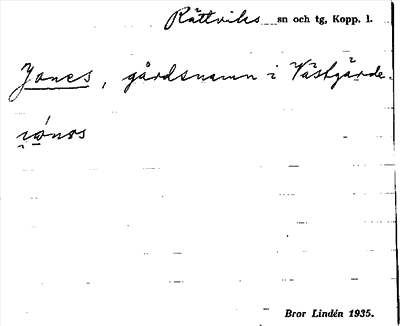 Rättviks sn och tg, Kopp. l.
Jones, gårdsnamn i Västgärde.
Bror Lindén 1935.